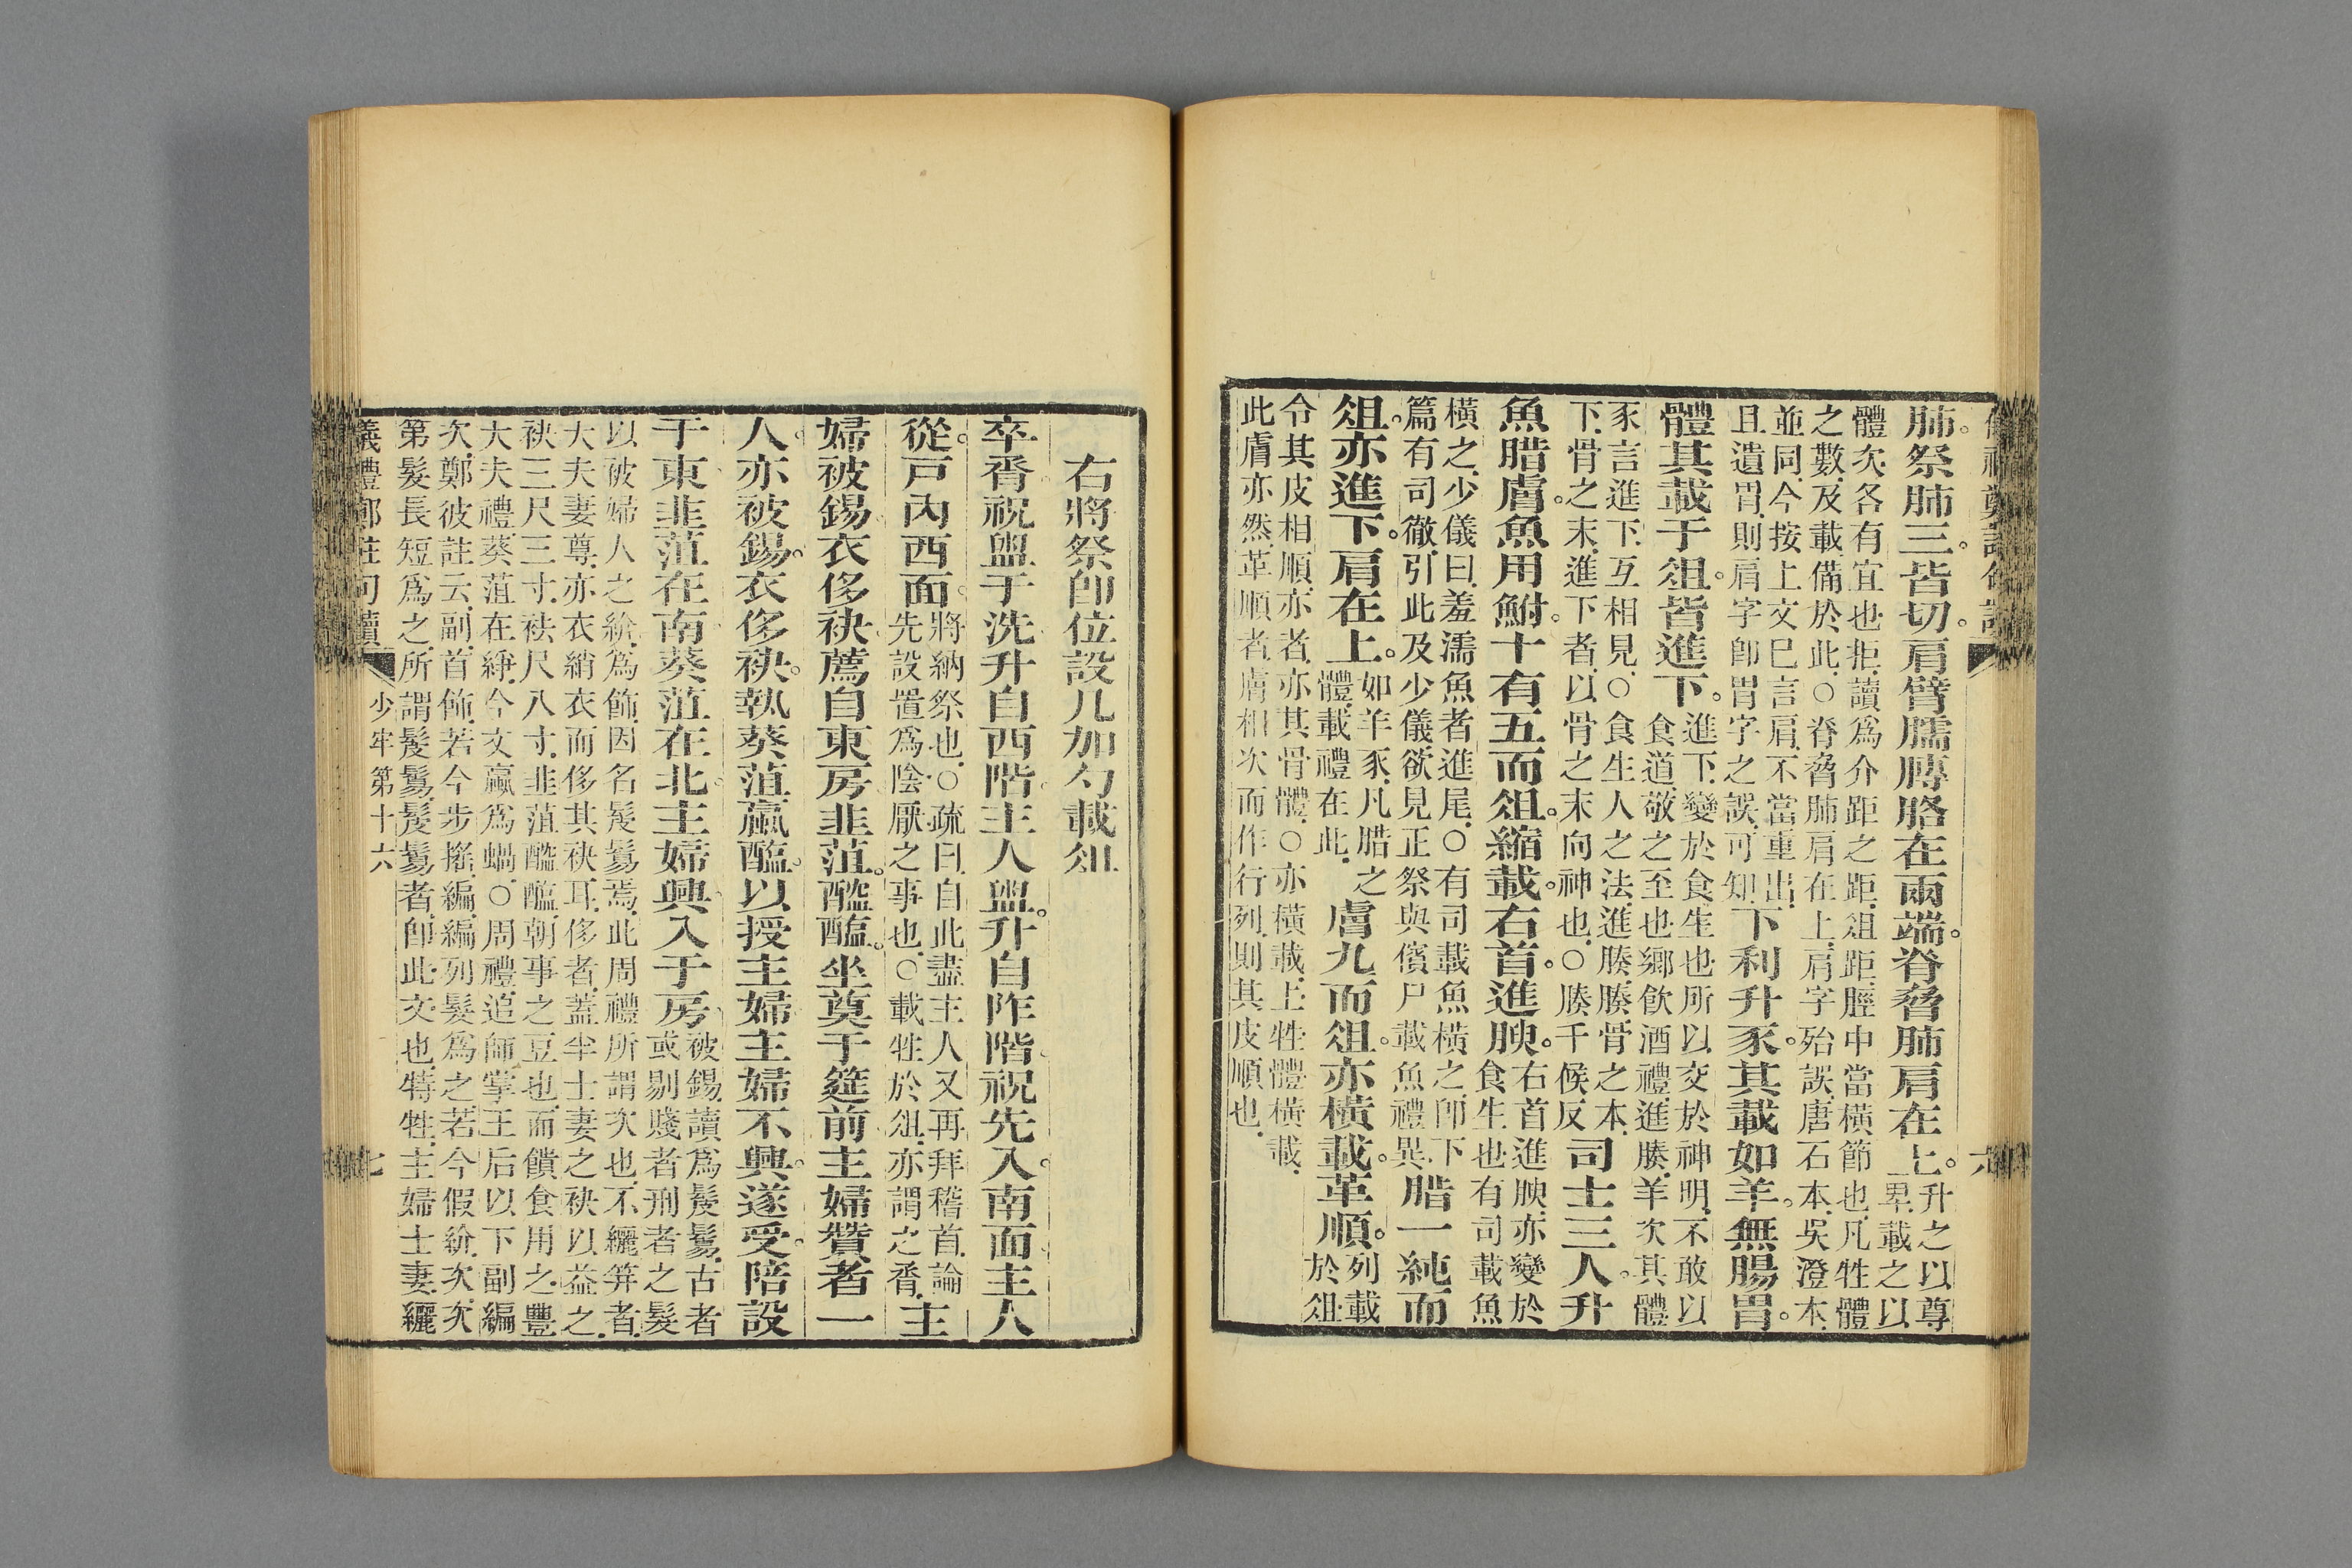 儀禮鄭註句讀 六
肺。祭肺三。皆切。肩臂臑膊胳在兩端。脊脅肺肩在上。升之以尊
卑載之以
體次各有宜也拒讀爲介距之距俎距脛中當橫節也凡牲體
之數及載備於此○脊脅肺肩在上肩字殆誤唐石本吳澄本
並同今按上文已言肩不當重出
且遺胃則肩字卽胃字之誤可知
下利升豕。其載如羊。無腸胃。
體其載于俎。皆進下。
進下變於食生也所以交於神明不敢以
食道敬之至也鄉飲酒禮進腠羊次其體
豕言進下互相見○食生人之法進腠腠骨之本
下骨之末進下者以骨之末向神也○腠千候反
司士三人。升
魚腊膚。魚用鮒。十有五而俎。縮載。右首。進腴。
右首進腴亦變於
食生也有司載魚
橫之少儀曰羞濡魚者進尾○有司載魚橫之卽下
篇有司徹引此及少儀欲見正祭與儐尸載魚禮異
腊一純而
俎。亦進下。肩在上。
如羊豕凡腊之
體載禮在此
膚九而俎。亦橫載。革順。
列載
於俎
令其皮相順亦者亦其骨體○亦橫載上牲體橫載
此膚亦然革順者膚相次而作行列則其皮順也
右將祭卽位設几加勺載俎
卒脀。祝盥于洗。升自西階。主人盥。升自阼階。祝先入。南面。主人
從。戶內西面。
將納祭也○疏曰自此盡主人又再拜稽首論
先設置爲陰厭之事也○載牲於俎亦謂之脀
主
婦被錫。衣侈袂。薦自東房。韭菹。醓醢。坐奠于筵前。主婦贊者一
人。亦被錫。衣侈袂。執葵菹蠃醢。以授主婦。主婦不興。遂受。陪設
于東。韭菹在南。葵菹在北。主婦興。入于房。
被錫讀爲髲鬄古者
或剔賤者刑者之髮
以被婦人之紒爲飾因名髲鬄焉此周禮所謂次也不纚笄者
大夫妻尊亦衣綃衣而侈其袂耳侈者蓋半士妻之袂以益之
袂三尺三寸袪尺八寸韭菹醓醢朝事之豆也而饋食用之豐
大夫禮葵菹在綪今文蠃爲蝸○周禮追師掌王后以下副編
次鄭彼註云副首飾若今步搖編編列髮爲之若今假紒次次
第髮長短爲之所謂髲鬄髲鬄者卽此文也特牲主婦士妻纚
儀禮鄭註句讀 少牢第十六 七